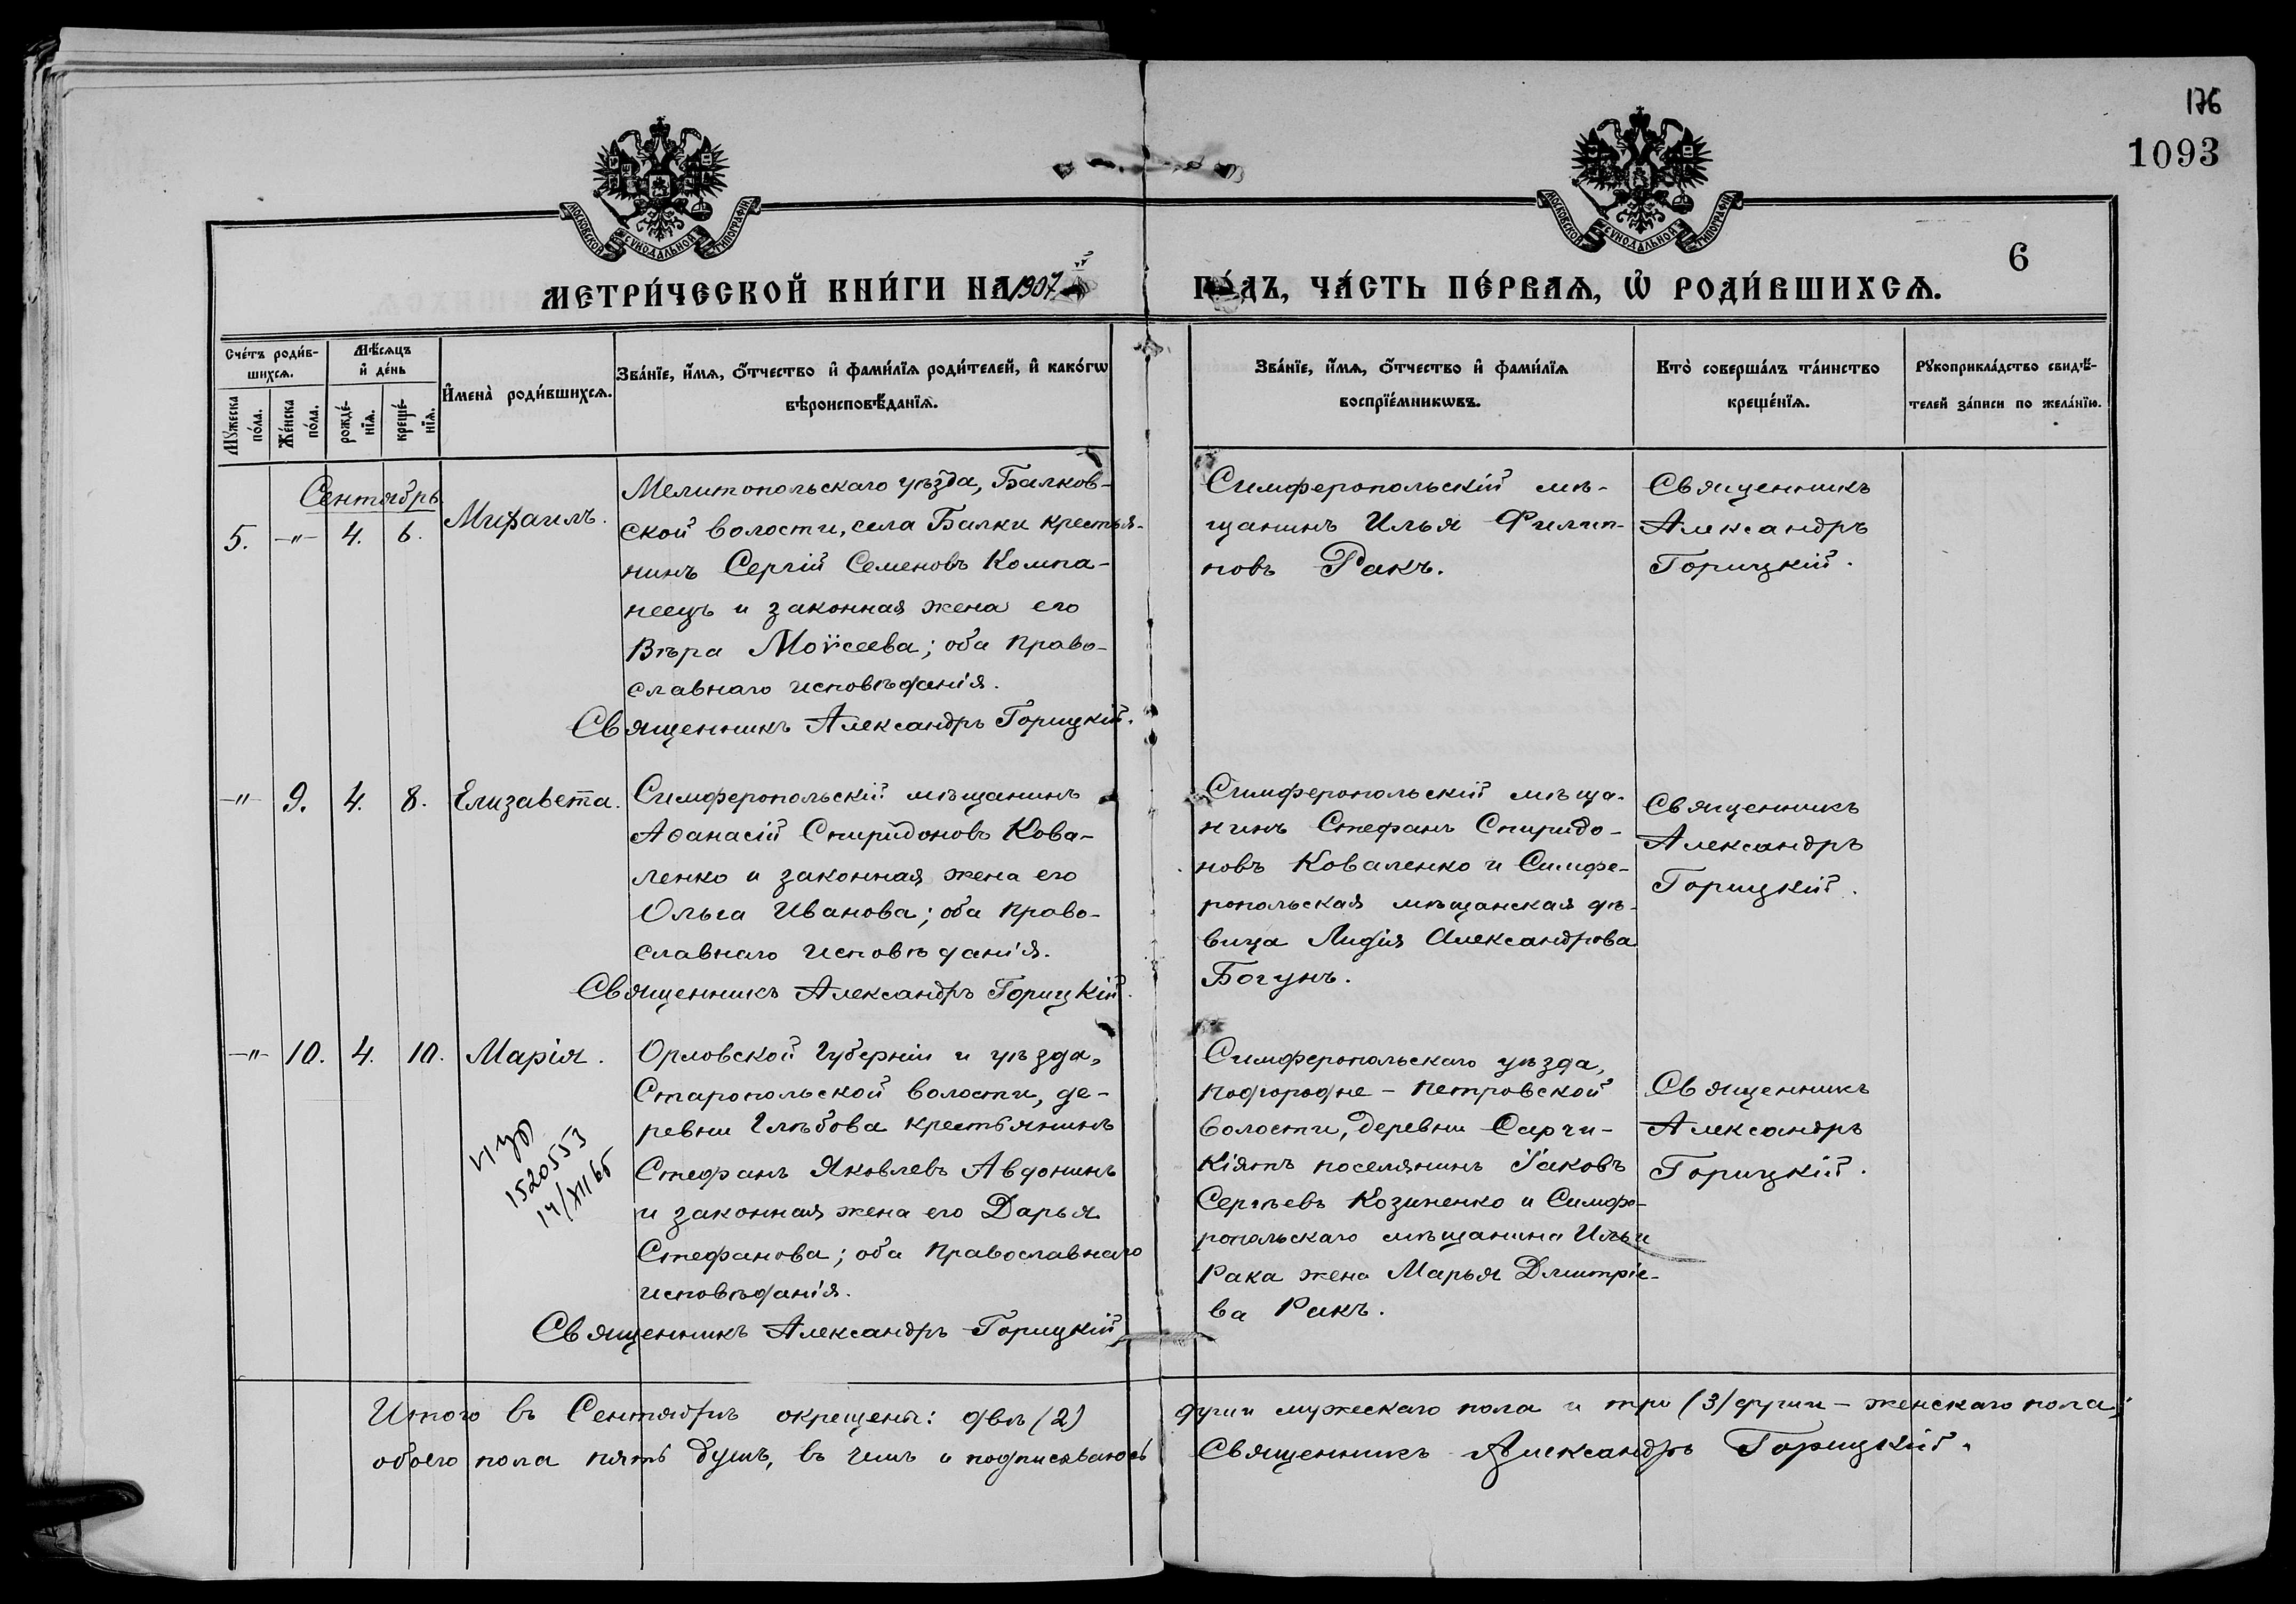 176
1093
МОСКОВСКОЙ СѴНОДАЛЬНОЙ ТИПОГРАФІИ
МОСКОВСКОЙ СѴНОДАЛЬНОЙ ТИПОГРАФІИ
6
МЕТРИ́ЧЕСКОЙ КНИ́ГИ НА 1907 й
ГО́ДЪ, ЧА́СТЬ ПЕ́РВАѦ, Ѡ҆ РОДИ́ВШИХСѦ.
Сче́тъ роди́в-
шихсѧ.
Мѣ́сѧцъ
и҆ де́нь
Мꙋ́жеска
по́ла.
Же́нска
по́ла.
рожде́-
нїѧ.
креще́-
нїѧ.
И҆мена̀ роди́вшихсѧ.
Зва́нїе, и҆́мѧ, ѻ҆́тчество и҆ фами́лїѧ роди́телей, и҆ како́гѡ
вѣроисповѣ́данїѧ.
Зва́нїе, и҆́мѧ, ѻ҆́тчество и҆ фами́лїѧ
воспрїе́мникѡвъ.
Кто̀ соверша́лъ та́инство
креще́нїѧ.
Рꙋкоприкла́дство свидѣ́-
телей за́писи по жела́нїю.
Сентябрь
5. -"- 4. 6. Михаилъ.
Мелитопольскаго уѣзда, Балков-
ской волости, села Балки крестья-
нинъ Сергій Семеновъ Компа-
неецъ и законная жена его
Вѣра Моѵсеева; оба право-
славнаго исповѣданія.
Священникъ Александръ Горицкій.
Симферопольскій мѣ-
щанинъ Илья Филип-
повъ Ракъ.
Священникъ
Александръ
Горицкій.
-"- 9. 4. 8. Елизавета.
Симферопольскій мѣщанинъ
Аѳанасій Спиридоновъ Кова-
ленко и законная жена его
Ольга Иванова; оба право-
славнаго исповѣданія.
Священникъ Александръ Горицкій.
Симферопольскій мѣща-
нинъ Стефанъ Спиридо-
новъ Коваленко и Симфе-
ропольская мѣщанская дѣ-
вица Лидія Александрова
Богунъ.
Священникъ
Александръ
Горицкій.
-"- 10. 4. 10. Марія.
1520553
14/XII 65
Орловской губерніи и уѣзда,
Старопольской волости, де-
ревни Глѣбова крестьянинъ
Стефанъ Яковлевъ Авдонинъ
и законная жена его Дарья
Стефанова; оба православнаго
исповѣданія.
Священникъ Александръ Горицкій
Симферопольскаго уѣзда,
Подгородне-Петровской
волости, деревни Сарчи-
Кіятъ поселянинъ Іаковъ
Сергѣевъ Козиненко и Симфе-
ропольскаго мѣщанина Ильи
Рака жена Марья Дмитріе-
ва Ракъ.
Священникъ
Александръ
Горицкій.
Итого въ Сентябрѣ окрещены: двѣ (2) души мужескаго пола и три (3) души - женскаго пола;
обоего пола пять душъ, въ чемъ и подписываюсь Священникъ Александръ Горицкій.